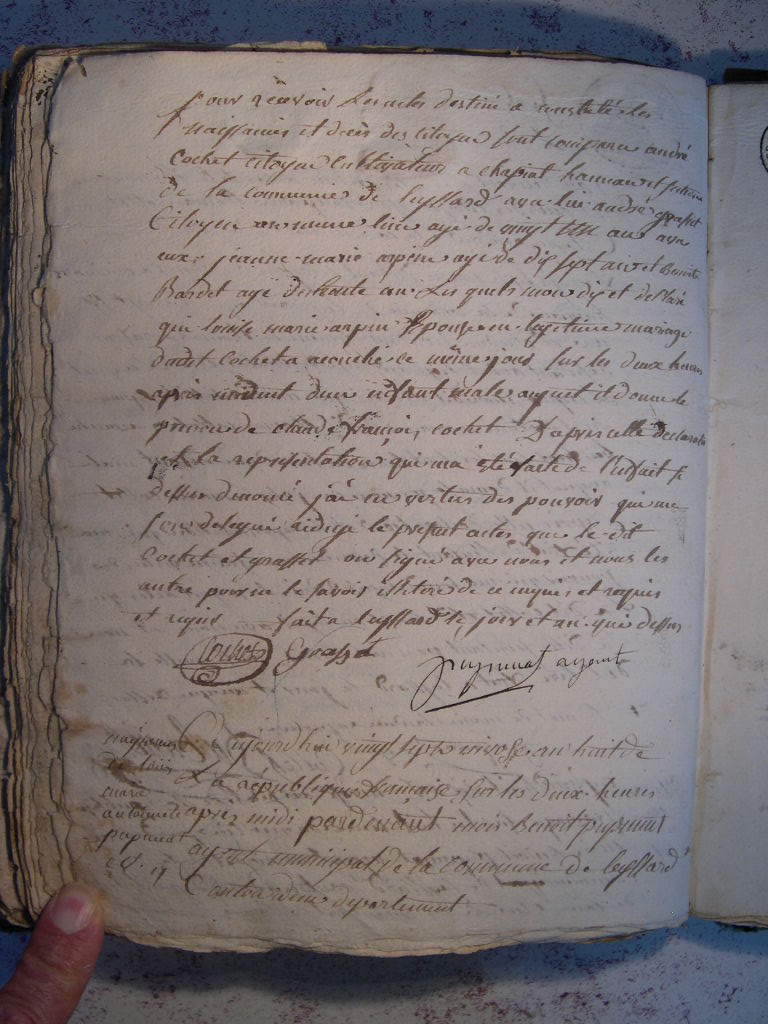 pour recevoir les actes destiné a constaté les
naissances et deces des citoyen sont comparu andré
Cochet citoyen cultivateur a chapiat hameau et section
de la commune de leyssard avec lui andré grasset
Citoyen au meme lieu agé de vingt ans avec
eux jeanne marie arpin agé de dix sept ans et Benoit
Bardet agé de trente an Les quels mon dit et déclaré
que louise marie arpin Epouse en legetime mariage
dudit Cochet a accouché ce même jour sur les deux heures
apres midi d'un enfant male auquel il donne le
prenom de claude françois cochet D'apres cette declaration
et la representation qui ma été faite de l'enfant si
dessus denomé j'ai en vertus des pouvoir qui me
son delegué redigé le present actes que le dit
Cochet et grasset on signé avec nous et nous les
autre pour ne le savoir de ce enquis et requis
et requis fait a leyssard le jour et an que dessus
Cochet Grasset puyrunat agent
naissance
de
marie
antoinette
puyrunat
Ce aujourd'hui vingt sept nivosse an huit de
La republique française sur les deux heures
apres midi pardevant mois Benoit puyrunat
agent municipal de la commune de leyssard
Canton departement